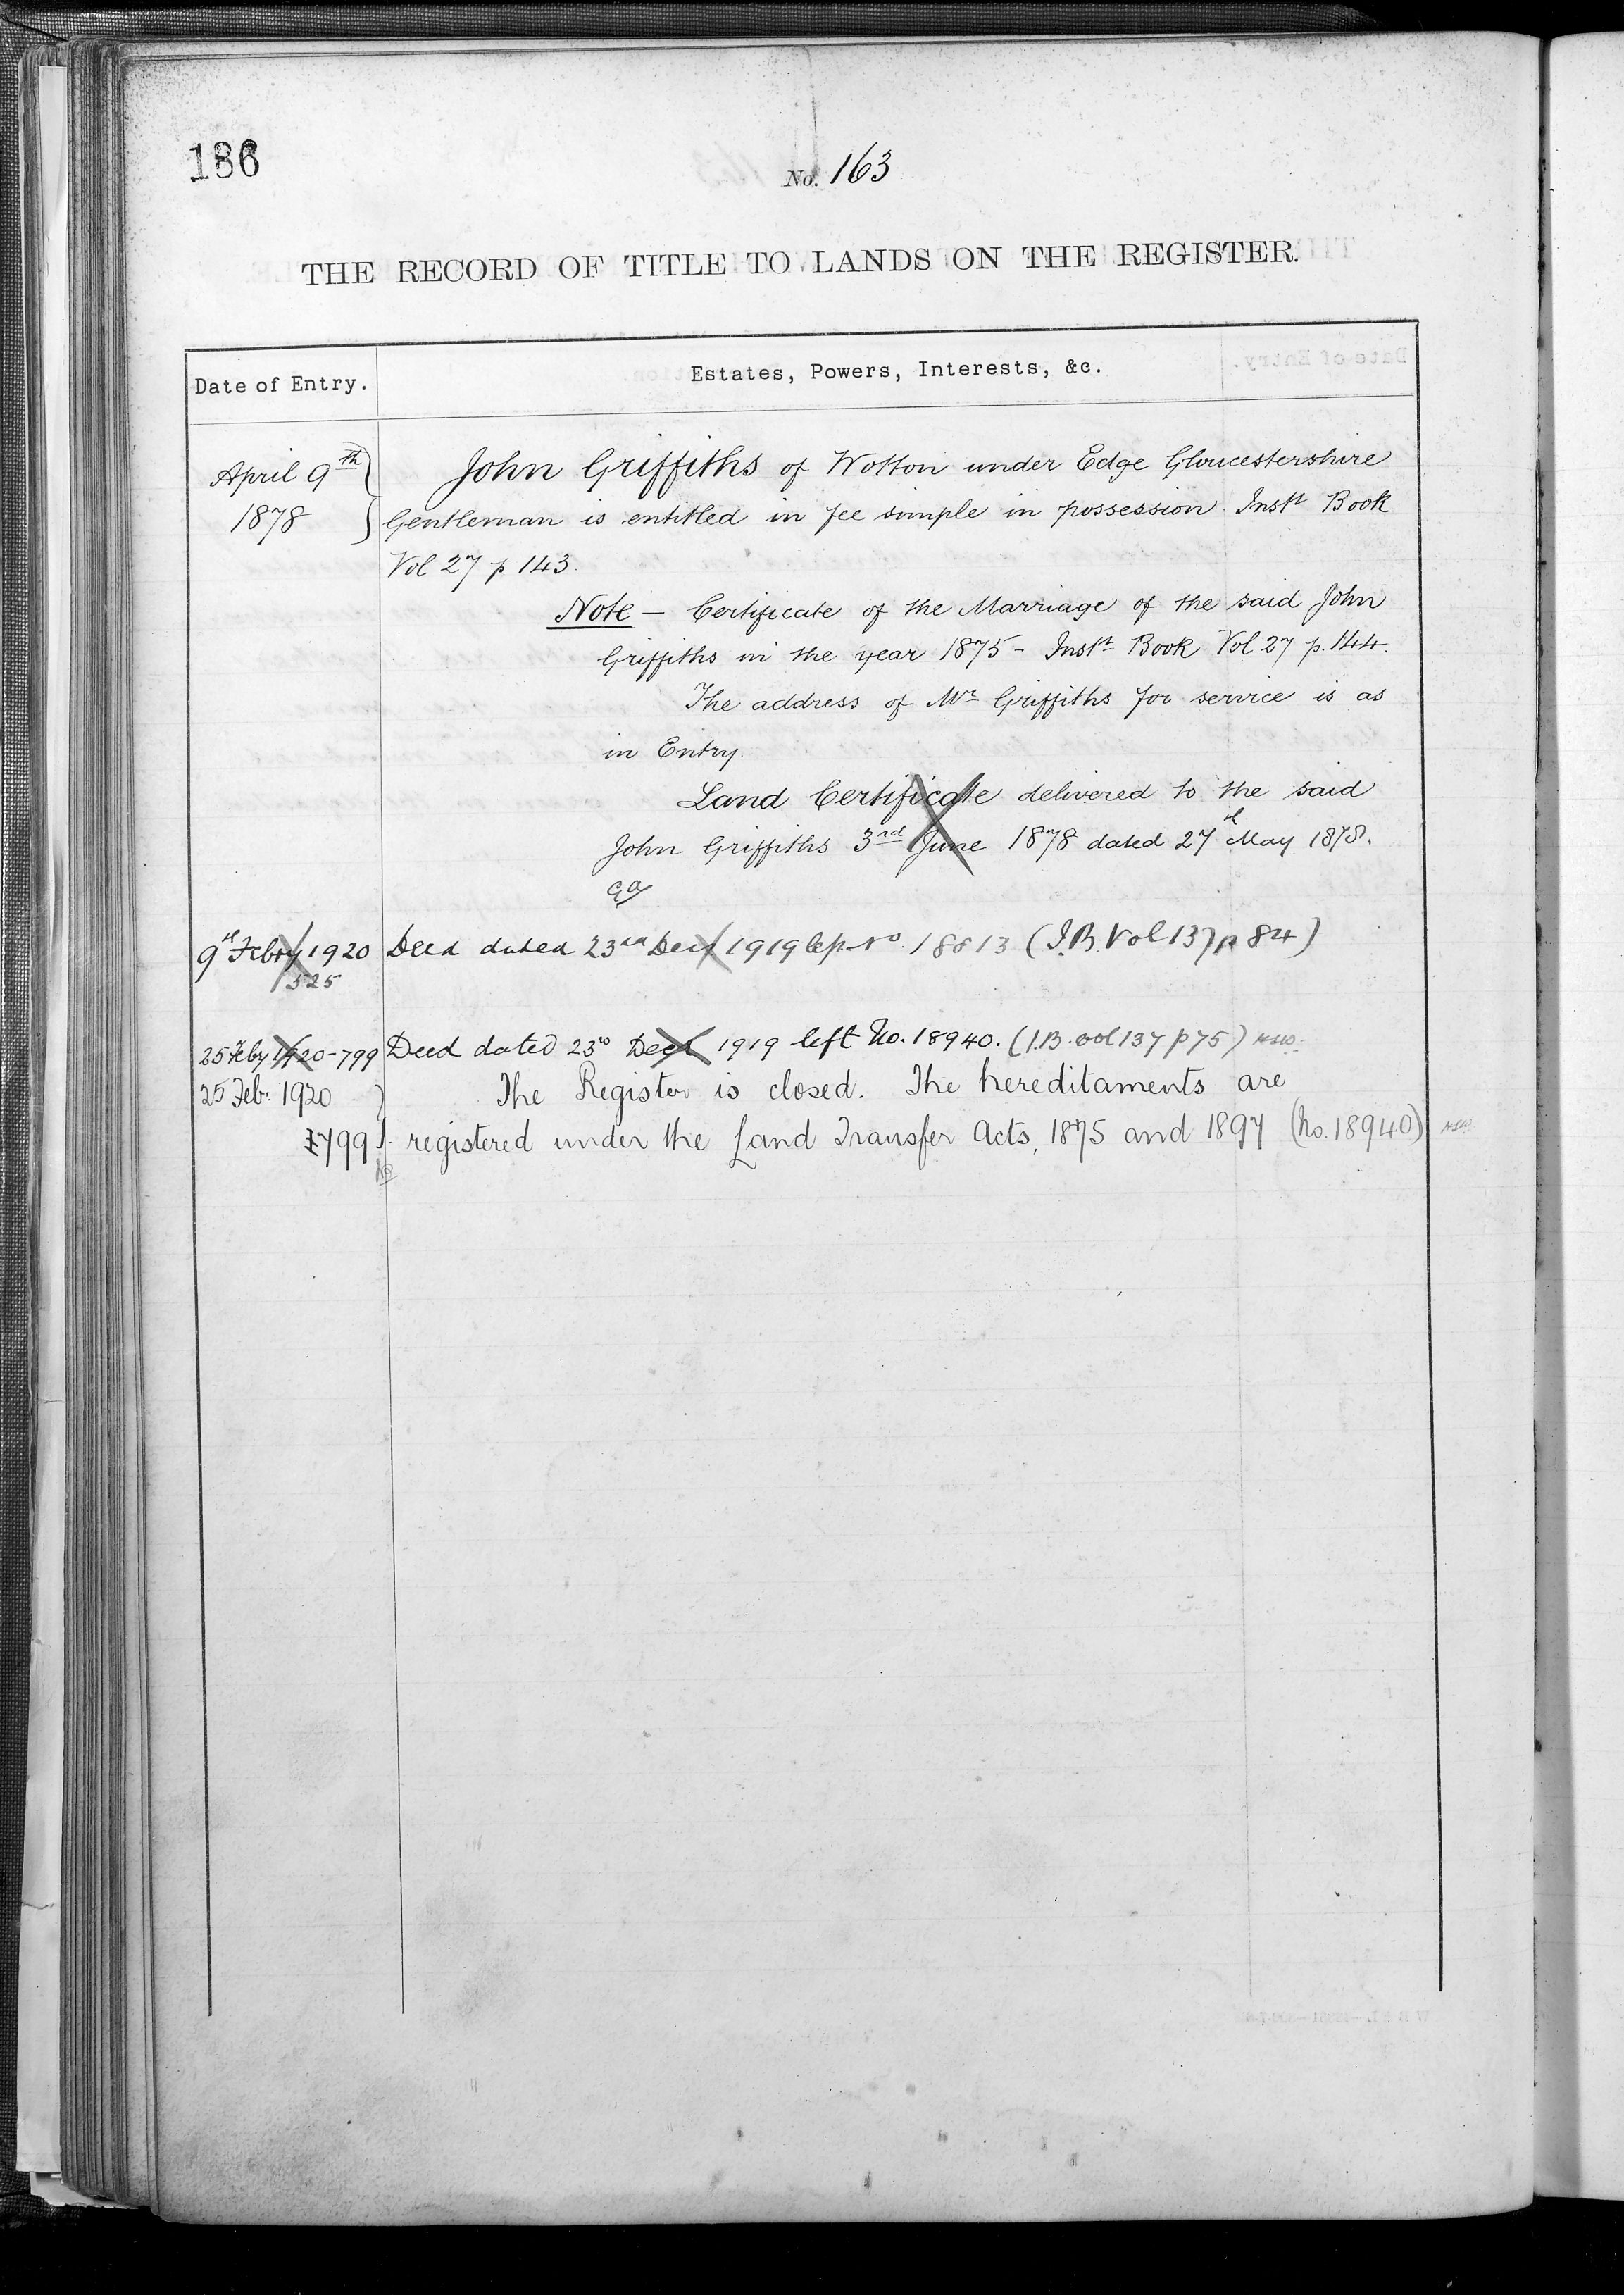 186
No. 163
THE RECORD OF TITLE TO LANDS ON THE REGISTER.
Date of Entry.
Estates, Powers, Interests, &c.
April 9th John Griffiths of Wotton under Edge Gloucestershire
1878 Gentleman is entitled in fee simple in possession Instt Book
Vol 27 p 143.
Note – Certificate of the Marriage of the said John
Griffiths in the year 1875 – Instt Book Vol 27 p. 144.
The address of Mr Griffiths for service is as
in Entry.
Land Certificate delivered to the said
John Griffiths 3rd June 1878 dated 27th May 1878.
9th Febry 1920 Deed dated 23rd Decr 1919 No. 18813 (I.B. Vol 137 p 84)
525
25 Feby 1920 - 799 Deed dated 23rd Decr 1919 left No. 18940. (I.B. vol 137 p 75)
25 Feb: 1920 The Register is closed. The hereditaments are
799 registered under the Land Transfer Acts, 1875 and 1897 (No. 18940)